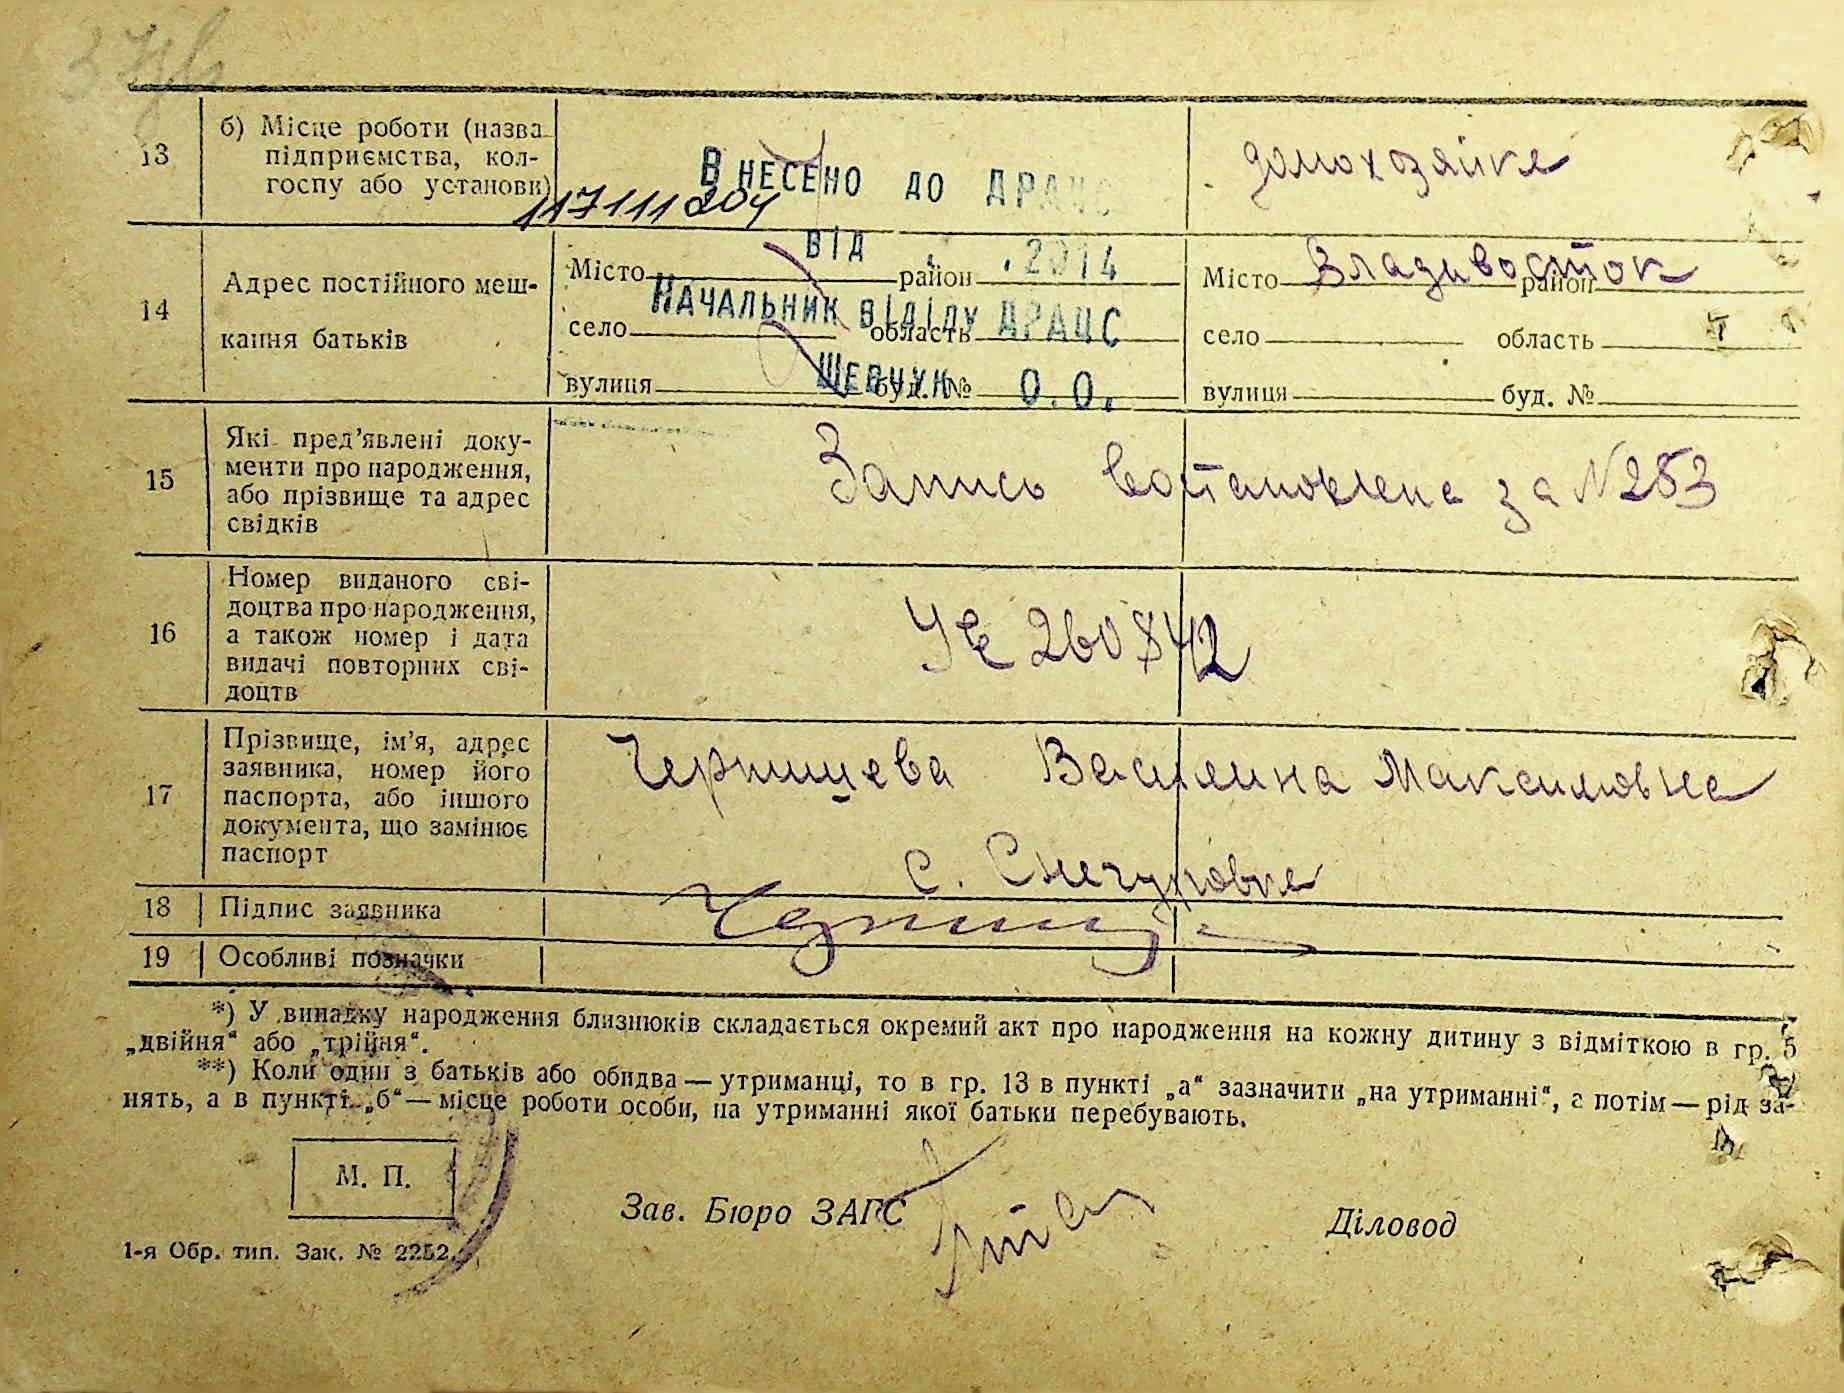 13
б) Місце роботи (назва
підприємства, кол-
госпу або установи)
Внесено до ДРАЦС
117111204
домохозяйка
від . .2014
14
Адрес постійного меш-
кання батьків
Місто район
Начальник відділу ДРАЦС
село область
Шевчук О.О.
вулиця буд. №
Місто Владивосток район
село область
вулиця буд. №
15
Які пред’явлені доку-
менти про народження,
або прізвище та адрес
свідків
Запись востановлена за №253
16
Номер виданого сві-
доцтва про народження,
а також номер і дата
видачі повторних сві-
доцтв
УЕ 260842
17
Прізвище, ім’я, адрес
заявника, номер його
паспорта, або іншого
документа, що замінює
паспорт
Чернищева Василина Максимовна
с. Снегуровка
18 Підпис заявника
19 Особливі позначки
*) У випадку народження близнюків складається окремий акт про народження на кожну дитину з відміткою в гр. 5
„двійня“ або „трійня“.
**) Коли один з батьків або обидва — утриманці, то в гр. 13 в пункті „а“ зазначити „на утриманні“, а потім — рід за-
нять, а в пункті „б“ — місце роботи особи, на утриманні якої батьки перебувають.
М. П.
Зав. Бюро ЗАГС
Діловод
1-я Обр. тип. Зак. № 2252.